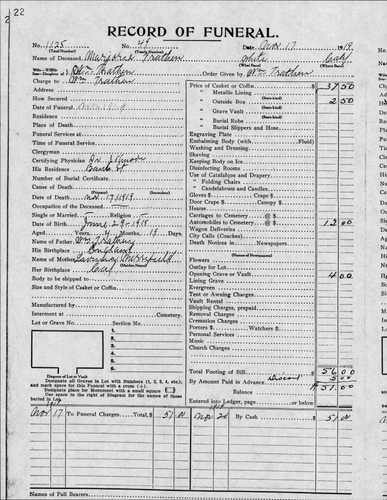 22
RECORD OF FUNERAL.
No. 1125 No. 49 Date Nov. 17 1919.
(Total Number) (Yearly Number) white
Name of Deceased, Trathen
Order Given by Wm Trathen
Charge to Wm Trathen
Address
How Secured
Date of Funeral
Residence
Place of Death
Funeral Services at
Time of Funeral Service
Clergyman
Certifying Physician Dr.
His Residence
Number of Burial Certificate
Cause of Death
(Primary) (Secondary)
Date of Death Nov. 17/1919
Occupation of the Deceased
Single or Married Religion
Date of Birth, June
Aged, Years, 4 Months, Days.
Name of Father, Wm Trathen
His Birthplace England
Name of Mother
(Maiden Name)
Her Birthplace Cal
Body to be shipped to
Size and Style of Casket or Coffin
Manufactured by
Interment at Cemetery.
Lot or Grave No. Section No.
1.
2.
3.
4.
5.
6.
Diagram of Lot or Vault
Designate all Graves in Lot with Numbers (1, 2, 3, 4, etc.), and mark space for this Funeral with a cross (+).
Designate place for Monument with a small square
Use space to the right of Diagram for the names of those buried in Lot.
Price of Casket or Coffin 37 50
" Metallic Lining
" Outside Box 2 50
" Grave Vault
" Burial Robe
" Burial Slippers and Hose
Engraving Plate
Embalming Body (with Fluid)
Washing and Dressing
Shaving
Keeping Body on Ice
Disinfecting Rooms
Use of Catafalque and Drapery
" Folding Chairs
" Candelabrum and Candles
Gloves $ Crape $
Door Crape $ Canopy $
Hearse
Carriages to Cemetery @ $
Automobiles to Cemetery @ $ 12 00
Wagon Deliveries
City Calls (Coaches)
Death Notices in Newspapers
(Names of Newspapers)
Flowers
Outlay for Lot
Opening Grave or Vault 4 00
Lining Grave
Evergreen
Tent or Awning Charges
Vault Rental
Shipping Charges, prepaid
Removal Charges
Cremation Charges
Porters $ Watchers $
Personal Services
Music
Church Charges
Total Footing of Bill, $ 56 00
By Amount Paid in Advance Discount 5 00
Balance $ 51 00
Entered into Ledger, page or below.
1919
Nov 17 To Funeral Charges Total, $ 51 00 Nov 20 By Cash $ 51 00
Names of Pall Bearers